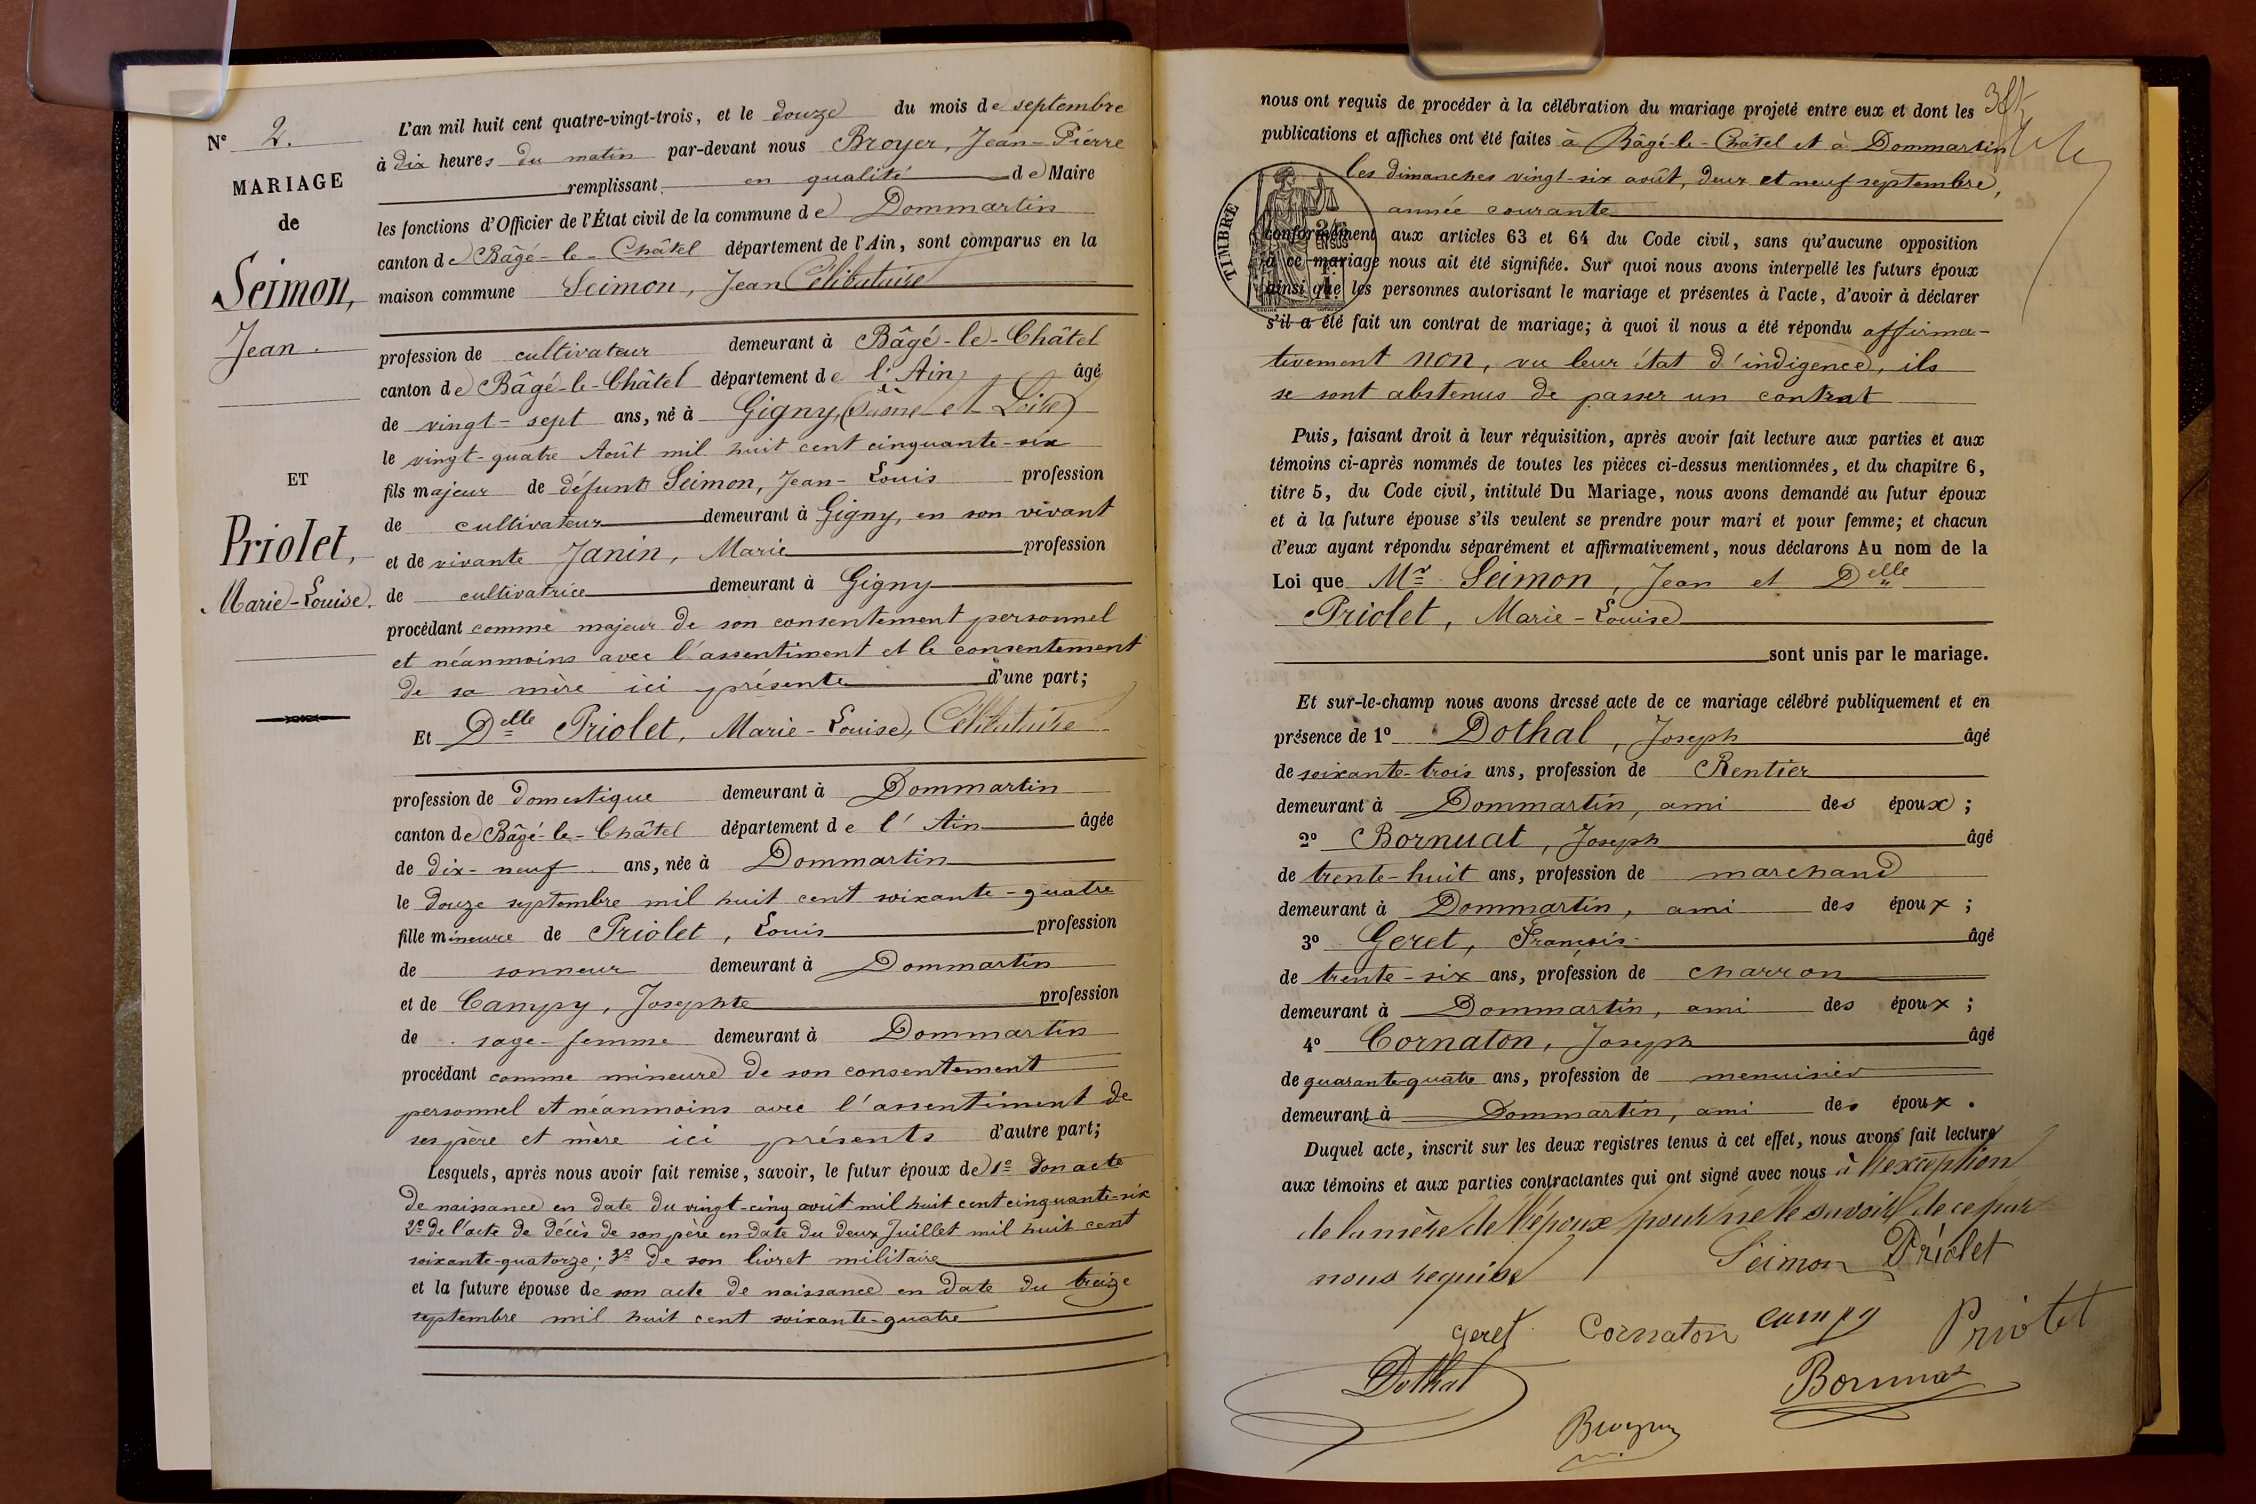 N° 2.
MARIAGE
de
Seimon,
Jean.
ET
Priolet,
Marie-Louise.
L'an mil huit cent quatre-vingt-trois, et le douze du mois de septembre
à dix heures du matin par-devant nous Broyer, Jean-Pierre
remplissant en qualité de Maire
les fonctions d'Officier de l'État civil de la commune de Dommartin
canton de Bâgé-le-Châtel département de l'Ain, sont comparus en la
maison commune Seimon, Jean Célibataire
profession de cultivateur demeurant à Bâgé-le-Châtel
canton de Bâgé-le-Châtel département de l'Ain, âgé
de vingt-sept ans, né à Gigny, (Saône et Loire)
le vingt-quatre Août mil huit cent cinquante-six
fils majeur de défunt Seimon, Jean-Louis profession
de cultivateur demeurant à Gigny, en son vivant
et de vivante Janin, Marie profession
de cultivatrice demeurant à Gigny
procédant comme majeur de son consentement personnel
et néanmoins avec l'assentiment et le consentement
de sa mère ici présente d'une part;
Et Delle Priolet, Marie-Louise, Célibataire
profession de domestique demeurant à Dommartin
canton de Bâgé-le-Châtel département de l'Ain âgée
de dix-neuf ans, née à Dommartin
le douze septembre mil huit cent soixante-quatre
fille mineure de Priolet, Louis profession
de sonneur demeurant à Dommartin
et de Campy, Josephte profession
de sage-femme demeurant à Dommartin
procédant comme mineure de son consentement
personnel et néanmoins avec l'assentiment de
ses père et mère ici présents d'autre part;
Lesquels, après nous avoir fait remise, savoir, le futur époux de 1° son acte
de naissance en date du vingt-cinq août mil huit cent cinquante-six
2° de l'acte de décès de son père en date du deux Juillet mil huit cent
soixante-quatorze; 3° de son livret militaire
et la future épouse de son acte de naissance en date du treize
septembre mil huit cent soixante-quatre
nous ont requis de procéder à la célébration du mariage projeté entre eux et dont les
publications et affiches ont été faites à Bâgé-le-Châtel et à Dommartin
les dimanches vingt-six août, deux et neuf septembre,
année courante
TIMBRE
conformément aux articles 63 et 64 du Code civil, sans qu'aucune opposition
à ce mariage nous ait été signifiée. Sur quoi nous avons interpellé les futurs époux
ainsi que les personnes autorisant le mariage et présentes à l'acte, d'avoir à déclarer
s'il a été fait un contrat de mariage; à quoi il nous a été répondu affirma-
tivement non, vu leur état d'indigence, ils
se sont abstenus de passer un contrat
Puis, faisant droit à leur réquisition, après avoir fait lecture aux parties et aux
témoins ci-après nommés de toutes les pièces ci-dessus mentionnées, et du chapitre 6,
titre 5, du Code civil, intitulé Du Mariage, nous avons demandé au futur époux
et à la future épouse s'ils veulent se prendre pour mari et pour femme; et chacun
d'eux ayant répondu séparément et affirmativement, nous déclarons Au nom de la
Loi que Mr Seimon, Jean et Delle
Priolet, Marie-Louise
sont unis par le mariage.
Et sur-le-champ nous avons dressé acte de ce mariage célébré publiquement et en
présence de 1° Dothal, Joseph âgé
de soixante-trois ans, profession de Rentier
demeurant à Dommartin, ami des époux;
2° Bornuat, Joseph âgé
de trente-huit ans, profession de marchand
demeurant à Dommartin, ami des époux;
3° Geret, François âgé
de trente-six ans, profession de charron
demeurant à Dommartin, ami des époux;
4° Cornaton, Joseph âgé
de quarante quatre ans, profession de menuisier
demeurant à Dommartin, ami des époux.
Duquel acte, inscrit sur les deux registres tenus à cet effet, nous avons fait lecture
aux témoins et aux parties contractantes qui ont signé avec nous à l'exception
de la mère de l'époux pour ne le savoir de ce par
nous requise
Seimon Priolet
Geret Cornaton campy Priolet
Dothal Bornuat
Broyer